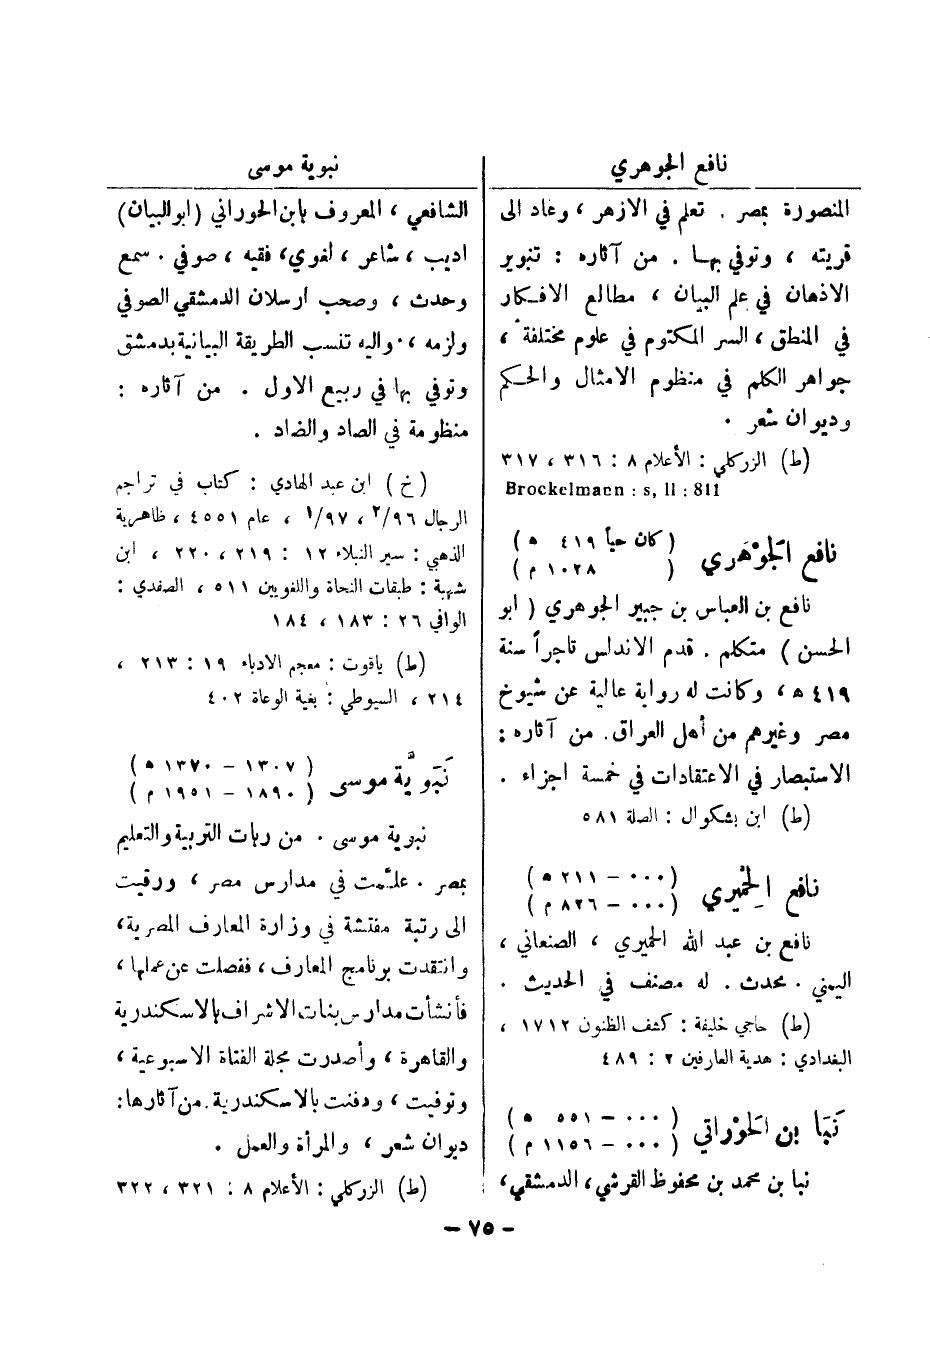 نافع الجوهري
المنصورة بمصر . تعلم في الازهر ، وعاد الى
قريته ، وتوفي بهـا . من آثاره : تنوير
الاذهان في علم البيان ، مطالع الافـكار
في المنطق ، السر المكتوم في علوم مختلفة ،
جواهر الكلم في منظوم الامثال والحكم
وديوان شعر .
(ط) الزركلي : الأعلام ٨ : ٣١٦ ، ٣١٧
Brockelmann : s, II : 811
نافع الجَوْهَري ( كان حياً ٤١٩ ه )
( ١٠٢٨ م )
نافع بن العباس بن جبير الجوهري ( ابو
الحسن ) متكلم . قدم الاندلس تاجراً سنة
٤١٩ ه ، وكانت له رواية عالية عن شيوخ
مصر وغيرهم من أهل العراق. من آثاره :
الاستبصار في الاعتقادات في خمسة اجزاء .
(ط) ابن بشكوال : الصلة ٥٨١
نافع الحِمْيري (٠٠٠ – ٢١١ ه )
(٠٠٠ – ٨٢٦ م )
نافع بن عبد الله الحميري ، الصنعاني ،
اليمني . محدث . له مصنف في الحديث .
(ط) حاجي خليفة : كشف الظنون ١٧١٢ ،
البغدادي : هدية العارفين ٢ : ٤٨٩
نَبَا بن الحَوْراني (٠٠٠ – ٥٥١ ه )
(٠٠٠ – ١١٥٦ م )
نبا بن محمد بن محفوظ القرشي ، الدمشقي ،
نبوية موسى
الشافعي ، المعروف بابن الحوراني (ابو البيان)
اديب ، شاعر ، لغوي ، فقيه ، صوفي . سمع
وحدث ، وصحب ارسلان الدمشقي الصوفي
ولزمه ، واليه تنسب الطريقة البيانية بدمشق
وتوفي بها في ربيع الاول . من آثاره :
منظومة في الصاد والضاد .
(خ) ابن عبد الهادي : كتاب في تراجم
الرجال ٩٦/٢ ، ٩٧/١ ، عام ٤٥٥١ ، ظاهرية
الذهبي : سير النبلاء ١٢ : ٢١٩ ، ٢٢٠ ، ابن
شهبة : طبقات النحاة واللغويين ٥١١ ، الصفدي :
الوافي ٢٦ : ١٨٣ ، ١٨٤
(ط) ياقوت : معجم الادباء ١٩ : ٢١٣ ،
٢١٤ ، السيوطي : بغية الوعاة ٤٠٢
نَبَوِيَّة موسى ( ١٣٠٧ – ١٣٧٠ ه )
( ١٨٩٠ – ١٩٥١ م )
نبوية موسى . من ربات التربية والتعليم
بمصر . علَّمت في مدارس مصر ، ورقيت
الى رتبة مفتشة في وزارة المعارف المصرية ،
وانتقدت برنامج المعارف ، ففصلت عن عملها ،
فأنشأت مدارس بنات الاشراف بالاسكندرية
والقاهرة ، وأصدرت مجلة الفتاة الاسبوعية ،
وتوفيت ، ودفنت بالاسكندرية . من آثارها :
ديوان شعر ، والمرأة والعمل .
(ط) الزركلي : الأعلام ٨ : ٣٢١ ، ٣٢٢
– ٧٥ –